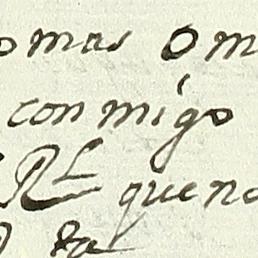 omas om
conmigo
Rl quena